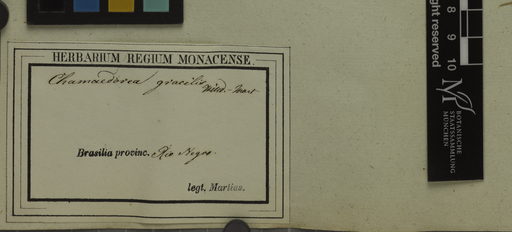 HERBARIUM REGIUM MONACENSE.
Chamaedorea gracilis Willd. - Mart
Brasilia provinc. Rio Negro.
legt. Martius.
ght reserved
8 9 10
BOTANISCHE
STAATSSAMMLUNG
MÜNCHEN